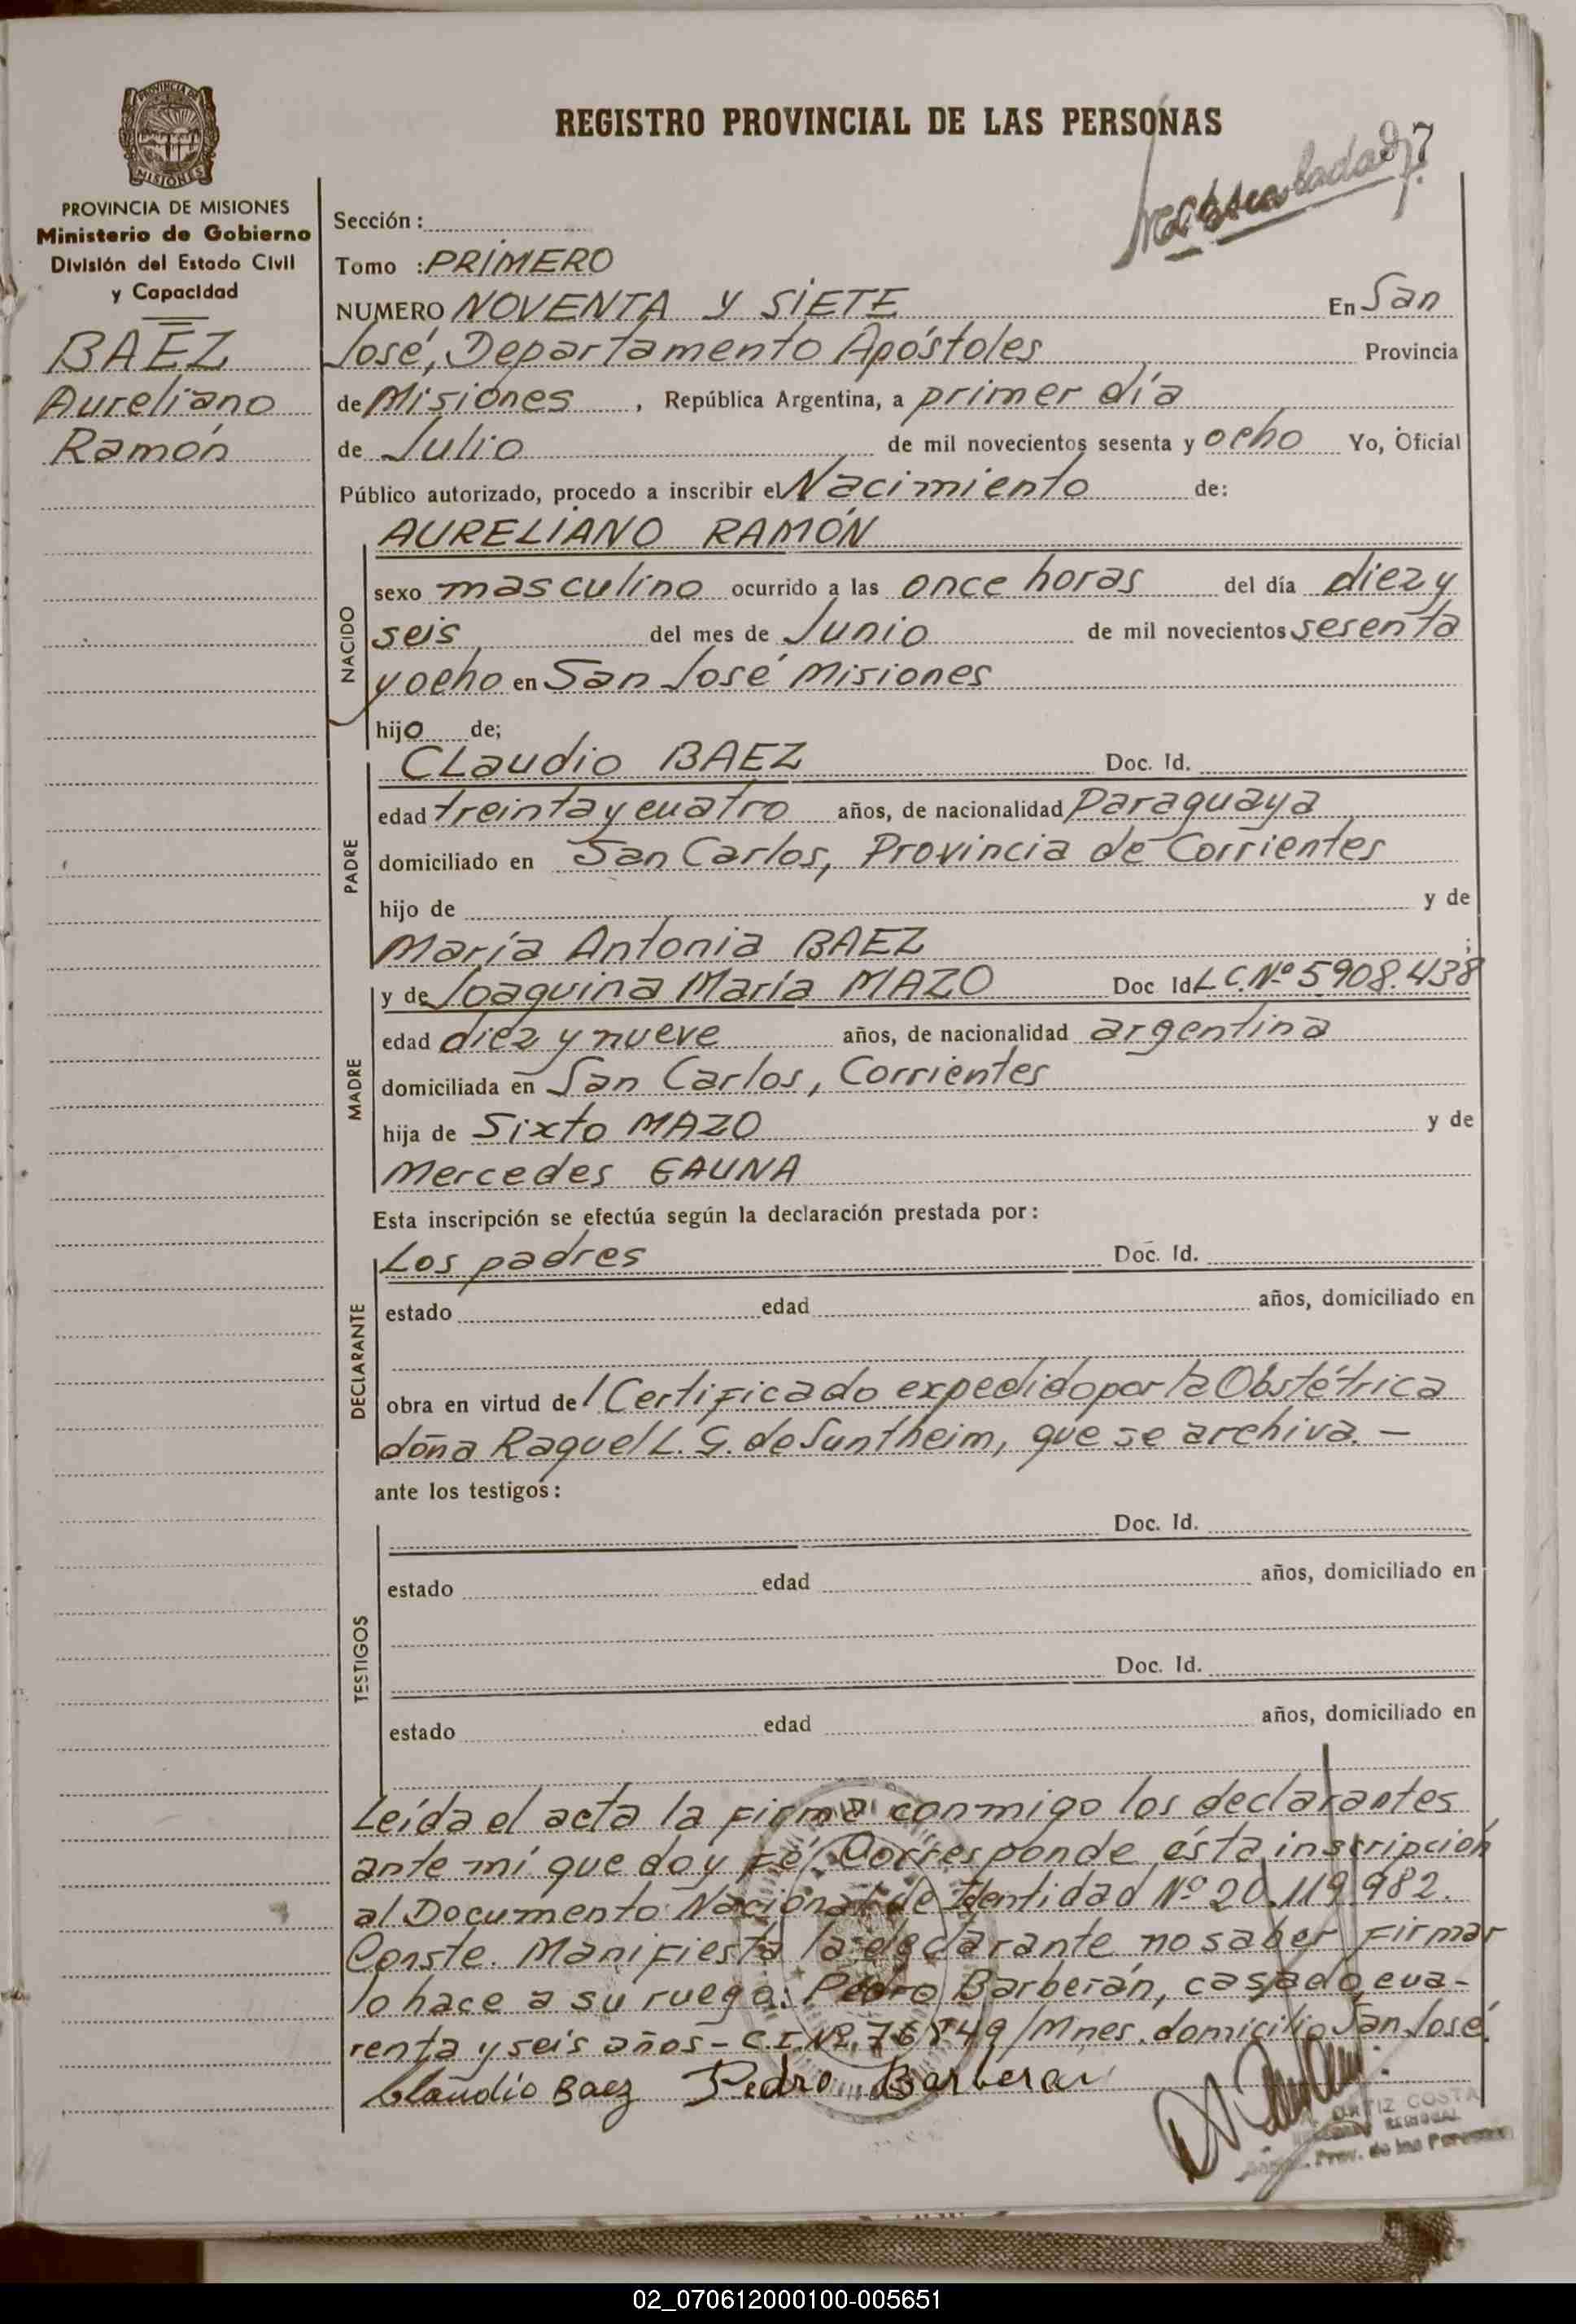 PROVINCIA DE MISIONES
PROVINCIA DE MISIONES
Ministerio de Gobierno
División del Estado Civil
y Capacidad
BAEZ
Aureliano
Ramón
REGISTRO PROVINCIAL DE LAS PERSONAS
97
Sección :
Tomo : PRIMERO
NUMERO NOVENTA y SIETE En San
José, Departamento Apóstoles Provincia
de Misiones , República Argentina, a primer día
de Julio de mil novecientos sesenta y ocho Yo, Oficial
Público autorizado, procedo a inscribir el Nacimiento de:
NACIDO
AURELIANO RAMÓN
sexo masculino ocurrido a las once horas del día diez y
seis del mes de Junio de mil novecientos sesenta
y ocho en San José Misiones
hijo de;
PADRE
CLaudio BAEZ Doc. Id.
edad treinta y cuatro años, de nacionalidad Paraguaya
domiciliado en San Carlos, Provincia de Corrientes
hijo de y de
María Antonia BAEZ ;
MADRE
y de Joaquina María MAZO Doc Id L.C.Nº 5908.438
edad diez y nueve años, de nacionalidad argentina
domiciliada en San Carlos, Corrientes
hija de Sixto MAZO y de
Mercedes GAUNA
Esta inscripción se efectúa según la declaración prestada por:
DECLARANTE
Los padres Doc. Id.
estado edad años, domiciliado en
obra en virtud del Certificado expedido por la Obstétrica
doña Raquel L. G. de Suntheim, que se archiva. –
ante los testigos:
TESTIGOS
Doc. Id.
estado edad años, domiciliado en
Doc. Id.
estado edad años, domiciliado en
Leída el acta la firma conmigo los declarantes
ante mí que doy fé. Corresponde ésta inscripción
al Documento Nacional de Identidad Nº 20.119.982.
Conste. Manifiesta la declarante no saber firmar
lo hace a su ruego: Pedro Barberán, casado, cua-
renta y seis años – C.I.Nº 76849/Mnes. domicilio San José.
Claudio Baez Pedro Barberan
ORTIZ COSTA
REGIONAL
Prov. de las Personas
02_070612000100-005651